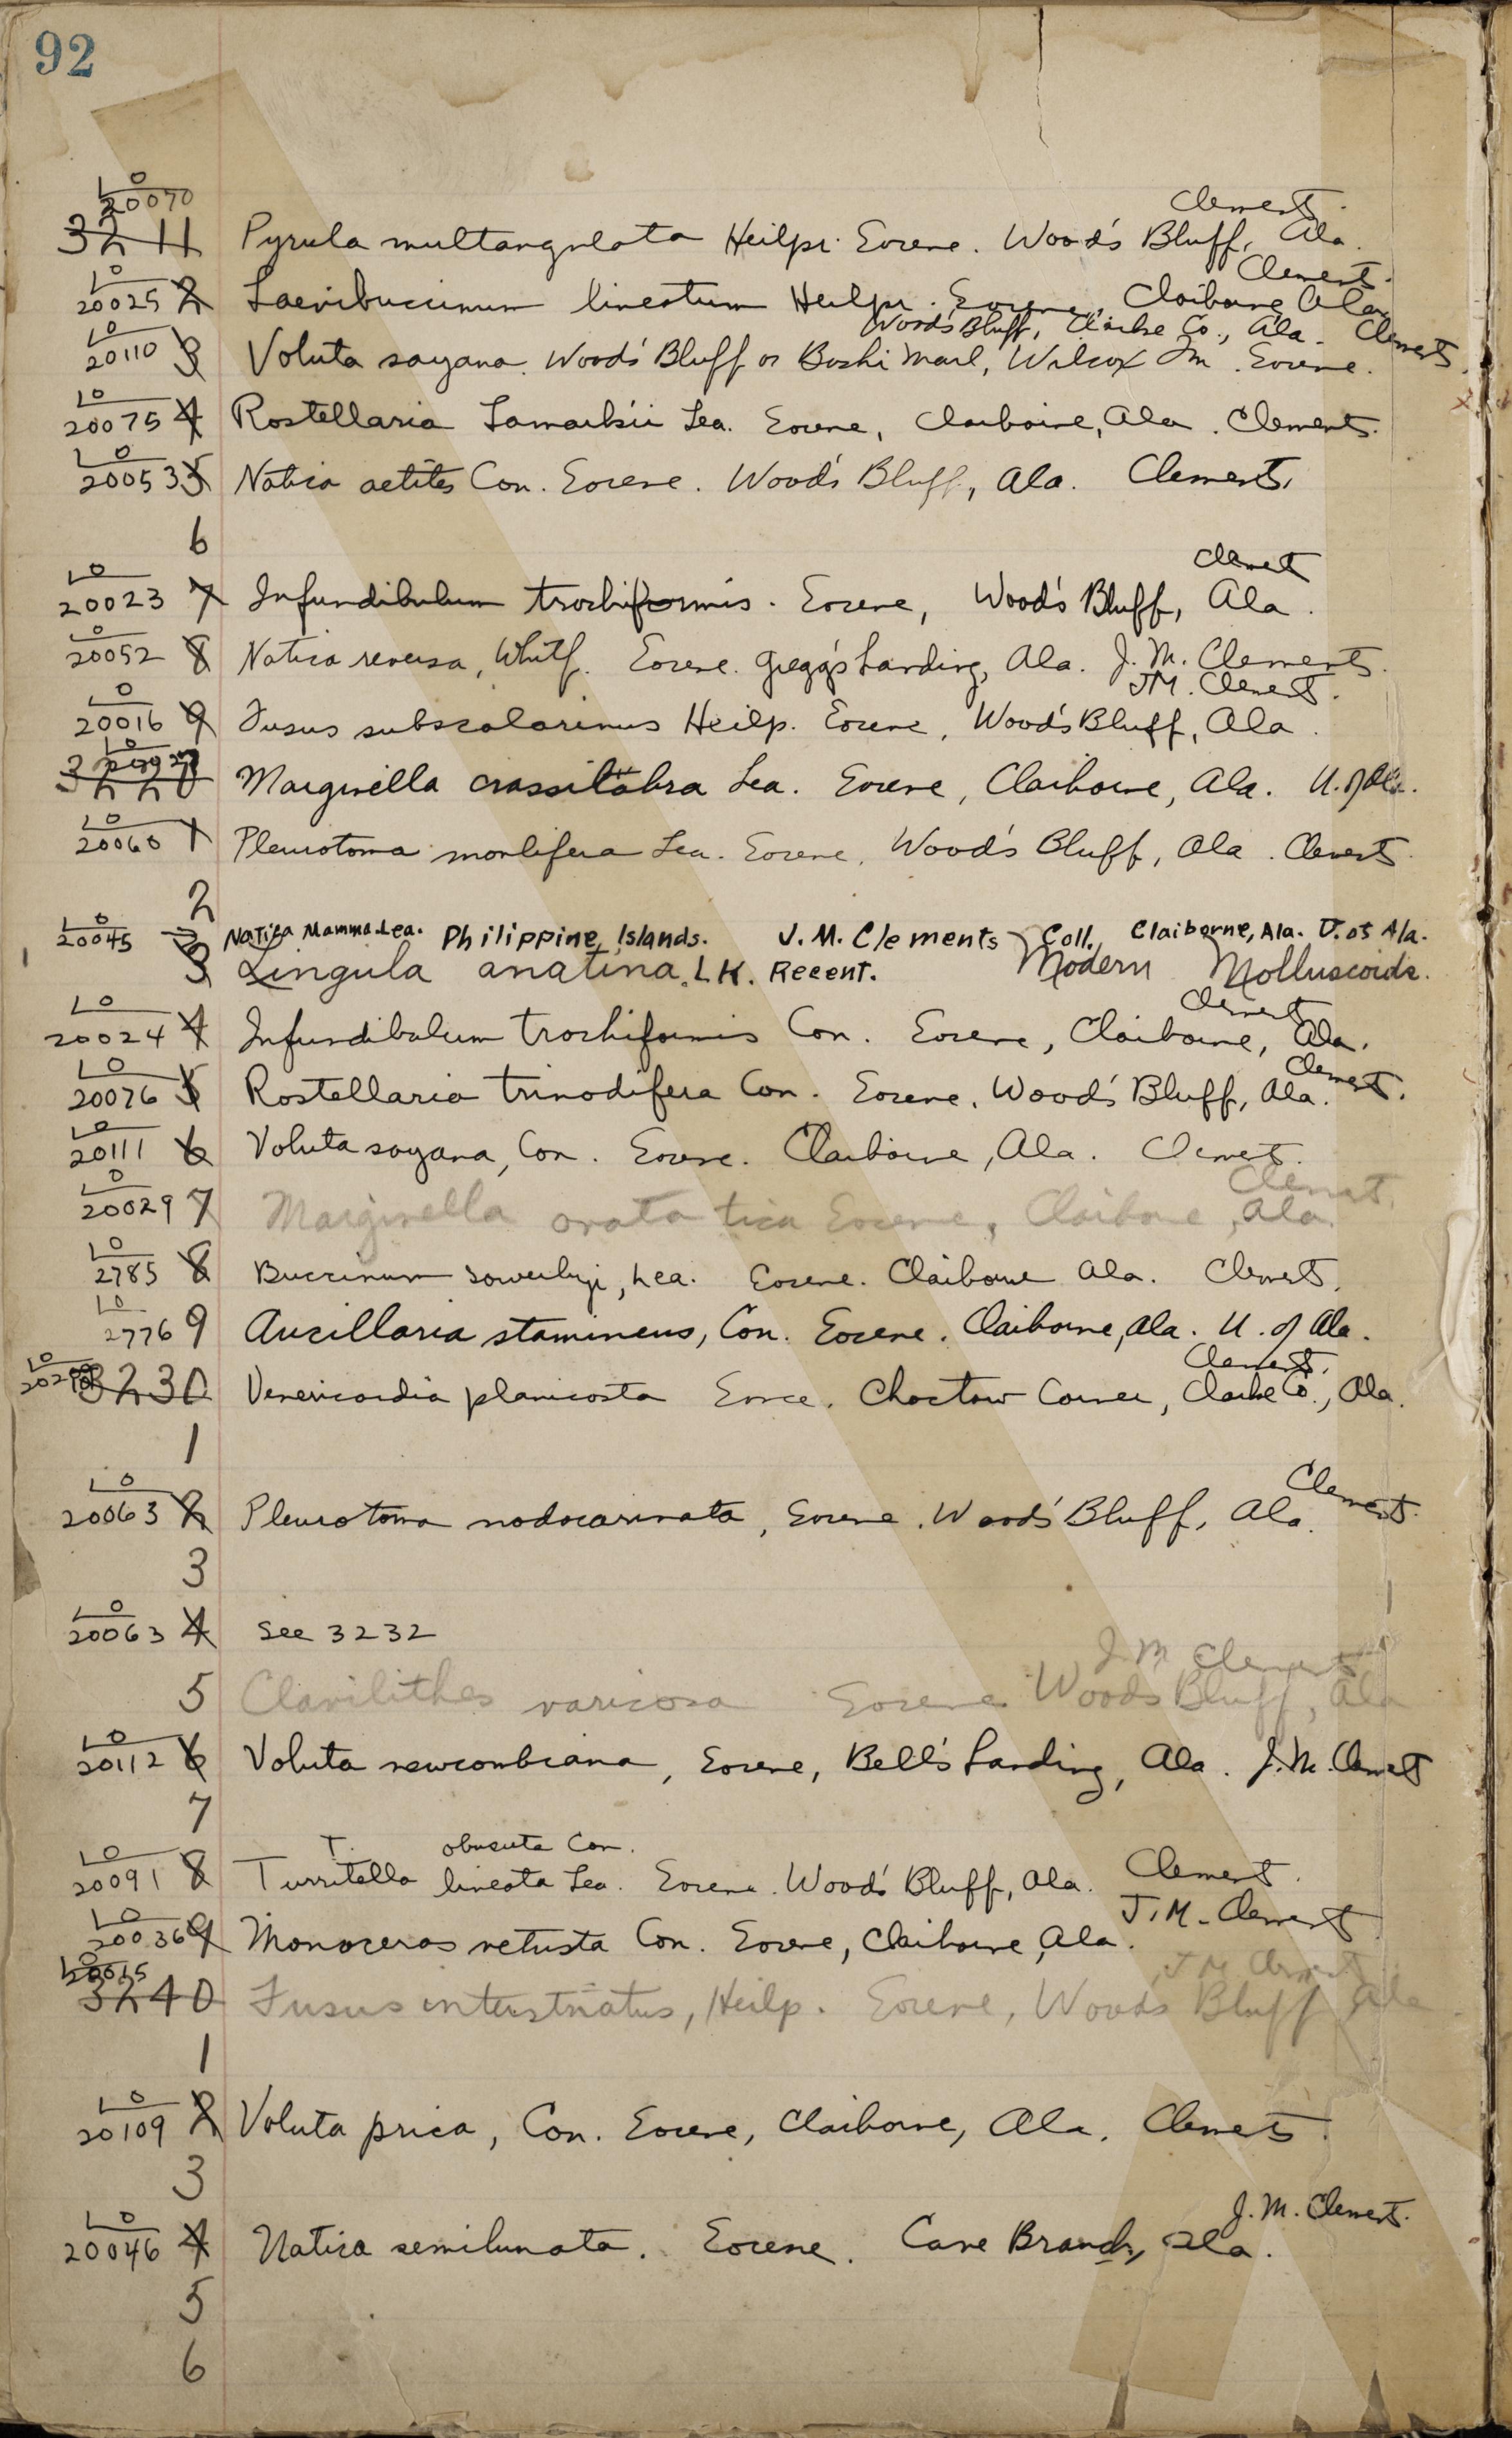 92
10
20070
3211 Pyrula multangulata Heilpr. Eocene. Wood's Bluff, Ala. Clements.
10
20025 2 Laevibuccinum lineatum Heilpr. Eocene, Claiborne Ala. Clements.
Wood's Bluff, Clarke Co., Ala. Clements.
10
20110 3 Voluta sayana. Wood's Bluff or Bashi Marl, Wilcox Fm. Eocene.
10
20075 4 Rostellaria Lamarkii Lea. Eocene, Claiborne, Ala. Clements.
10
20053 5 Natica aetites Con. Eocene. Wood's Bluff, Ala. Clements.
6
10
20023 7 Infundibulum trochiformis. Eocene, Wood's Bluff, Ala. Clements
10
20052 8 Natica reversa, Whitf. Eocene. Gregg's Landing, Ala. J. M. Clements.
10
20016 9 Fusus subscalarinus Heilp. Eocene, Wood's Bluff, Ala. J.M. Clements.
10
3220 Marginella crassilabra Lea. Eocene, Claiborne, Ala. U. of Ala.
10
20060 1 Pleurotoma monlifera Lea. Eocene, Wood's Bluff, Ala. Clements.
2
10
20045 Natica Mamma Lea. J. M. Clements Coll. Claiborne, Ala. U. of Ala.
3 Lingula anatina. LK. Recent. Philippine Islands. Modern Molluscoida.
10
20024 4 Infundibulum trochiformis Con. Eocene, Claiborne, Ala. Clements
10
20076 5 Rostellaria trinodifera Con. Eocene, Wood's Bluff, Ala. Clements.
10
20111 6 Voluta sayana, Con. Eocene. Claiborne, Ala. Clements.
10
20029 7 Marginella Eocene, Claiborne, Ala. Clements.
10
2785 8 Buccinum sowerbyi, Lea. Eocene. Claiborne Ala. Clements.
10
2776 9 Ancillaria stamineus, Con. Eocene. Claiborne, Ala. U. of Ala.
10
3230 Venericardia planicosta Eocene. Choctaw Corner, Clarke Co., Ala. Clements.
1
10
20063 2 Pleurotoma nodocarinata, Eocene. Wood's Bluff, Ala. Clements.
3
10
20063 4 See 3232
5 Clavilithes varicosa Eocene Woods Bluff, Ala J M Clements
10
20112 6 Voluta newcombiana, Eocene, Bell's Landing, Ala. J. M. Clements
7
T. obruta Con.
10
20091 8 Turritella lineata Lea. Eocene. Wood's Bluff, Ala. Clements.
10
20036 9 Monoceros vetusta Con. Eocene, Claiborne, Ala. J. M. Clements
10
20015
3240 Fusus interstriatus, Heilp. Eocene, Woods Bluff Ala J M Clements
1
10
20109 2 Voluta prica, Con. Eocene, Claiborne, Ala. Clements.
3
10
20046 4 Natica semilunata. Eocene. Cave Branch, Ala. J. M. Clements.
5
6